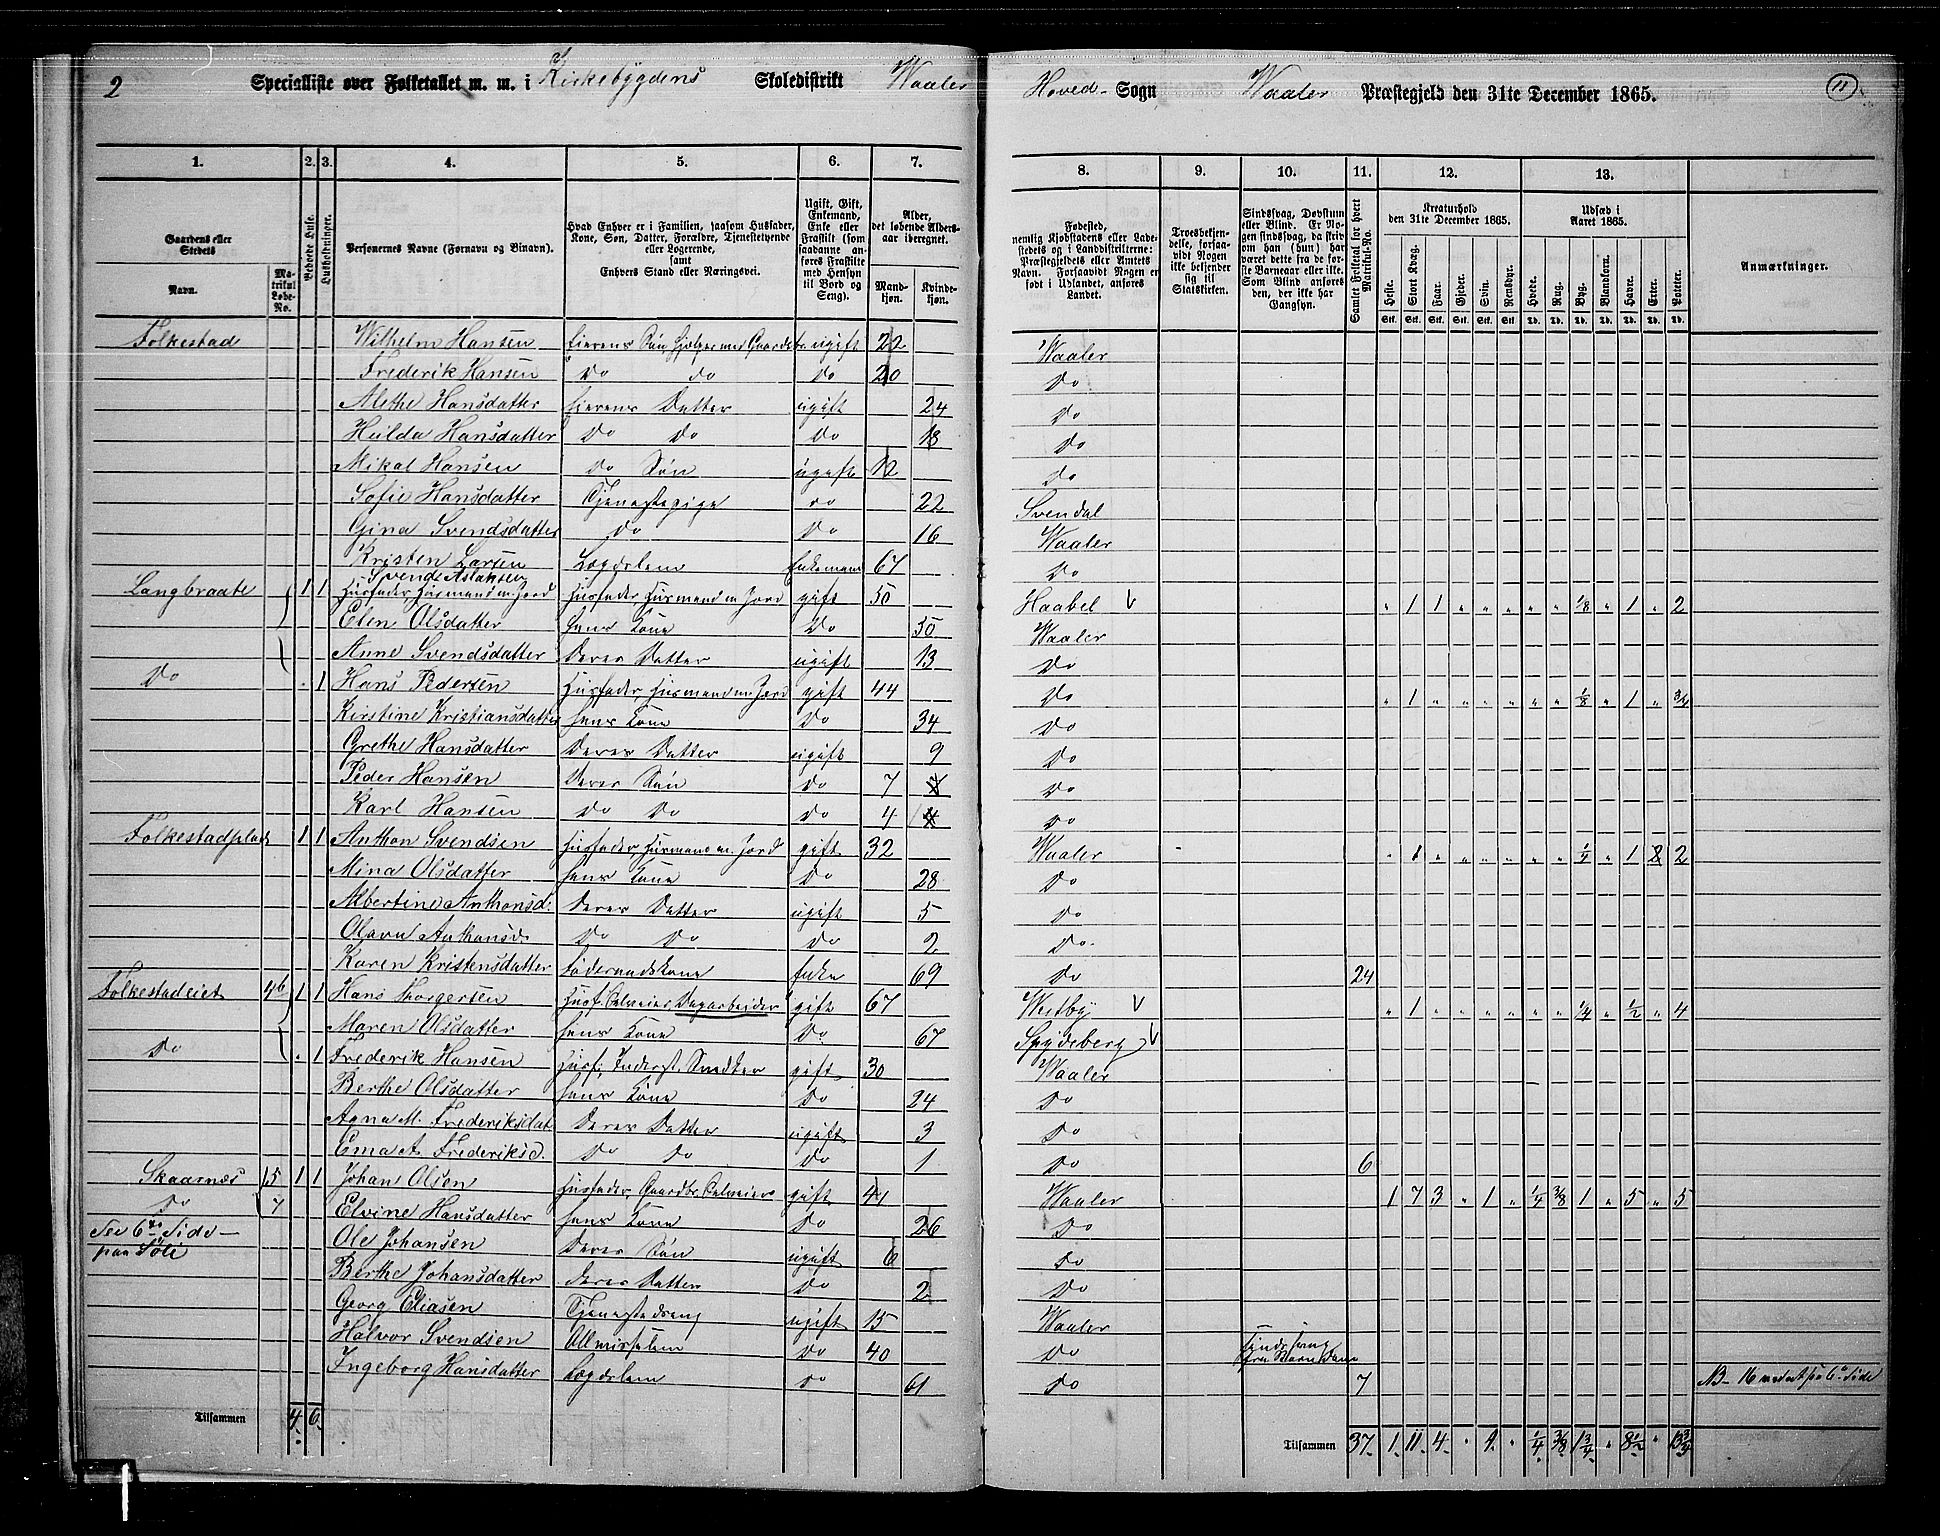 2 Specialliste over Folketallet m. m. i Kirkebygdens Skoledistrikt Waaler Hoved- Sogn Waaler Præstegjeld den 31te December 1865. 11
1. 2. 3. 4. 5. 6. 7. 8. 9. 10. 11. 12. 13.
Gaardens eller Stedets Navn. Matrikul Løbe-No. Beboede Huse. Husholdninger. Personernes Navne (Fornavn og Binavn). Hvad Enhver er i Familien, saasom Husfader, Kone, Søn, Datter, Forældre, Tjenestetyende eller Logerende, samt Enhvers Stand eller Næringsvei. Ugift, Gift, Enkemand, Enke eller Frastilt (som saadanne anføres Fraskilte med Hensyn til Bord og Seng). Alder, det løbende Alders-aar iberegnet. Mandkjøn. Kvindekjøn. Fødested, nemlig Kjøbstadens eller Ladestedets og i Landdistrikterne: Præstegjeldets eller Amtets Navn. Forsaavidt Nogen er født i Udlandet, anføres Landet. Troesbekjendelse, forsaavidt Nogen ikke bekjender sig til Statskirken. Sindssvag, Døvstum eller Blind. Er Nogen sindssvag, da skrives om han (hun) har været dette fra de første Barneaar eller ikke. Som Blind anføres den, der ikke har Gangsyn. Samlet Folketal for hvert Matrikul-No. Kreaturhold den 31te December 1865. Heste. Stort Kvæg. Faar. Gjeder. Svin. Rensdyr. Udsæd i Aaret 1865. Hvede. Rug. Byg. Blandkorn. Havre. Erter. Poteter. Anmærkninger.
Folkestad Wilhelm Hansen Eierens Søn hjelper med Gaardsbr. ugift 22 Waaler
Frederik Hansen Do do do 20 Do
Alethe Hansdatter Eierens Datter ugift 24 Do
Hilda Hansdatter Do Do Do 18 Do
Mikal Hansen do Søn ugift 12 Do
Sofie Hansdatter Tjenestepige do 22 Svendal
Gina Svendsdatter do Do 16 Waaler
Kristen Larsen Lægdslem Enkemand 67 Do
Svend Aslaksen
Langbraate 1 1 Husfader Husmand m. Jord Husfader Husmand m. Jord gift 50 Haabel V " 1 1 " " " " " 1/8 " 1 " 2
Elen Olsdatter hans Kone Do 50 Waaler
Anne Svendsdatter deres Datter ugift 13 Do
Do . 1 Hans Pedersen Husfader, Husmand m. Jord gift 44 Do " 1 " " " " " " 1/8 " 1 " 3/4
Kirstine Kristiansdatter hans Kone Do 34 Do
Grethe Hansdatter deres Datter ugift 9 Do
Peder Hansen deres Søn Do 7 Do
Karl Hansen Do Do Do 4 Do
Folkestadplads 1 1 Anthon Svendsen Husfader Husmand m. Jord gift 32 Waaler " 1 " " " " " " 1/4 " 1 8 2
Mina Olsdatter hans Kone Do 28 Do
Albertine Anthonsd. deres Datter ugift 5 Do
Olava Anthonsd. Do Do Do 2 Do
Karen Kristensdatter Føderaadskone Enke 69 Do 24
Folkestadeiet 4b 1 1 Hans Thorgersen Husf. Selveier Dagarbeider gift 67 Westby V " 1 " " " " " " 1/4 " 1/2 " 4
Maren Olsdatter hans Kone Do 67 Spydeberg V
Do . 1 Frederik Hansen Husf. Inderst Smed gift 30 Waaler
Berthe Olsdatter hans Kone Do 24 Do
Agna M. Frederiksdat. deres Datter ugift 3 Do
Ema A. Frederiksd. Do Do Do 1 Do 6
Skaarnæs 15 1 1 Johan Olsen Husfader, Gaardbr. Selveier gift 41 Waaler 1 7 3 " 1 " 1/4 3/8 1 " 5 " 5
Do 7 Elvine Hansdatter hans Kone Do 26 Do
See 6te Side – Ole Johansen deres Søn ugift 6 Do
paa Berthe Johansdatter deres Datter Do 2 Do
Georg Eliasen Tjenestedreng ugift 15 Waaler
Halvor Svendsen Almisselem Do 40 Do
Ingeborg Hansdatter Lægdslem Do 61 Do 7
Tilsammen 4 6 Tilsammen 37 1 11 4 " 1 " 1/4 3/8 1 3/4 " 8 1/2 " 13 3/4